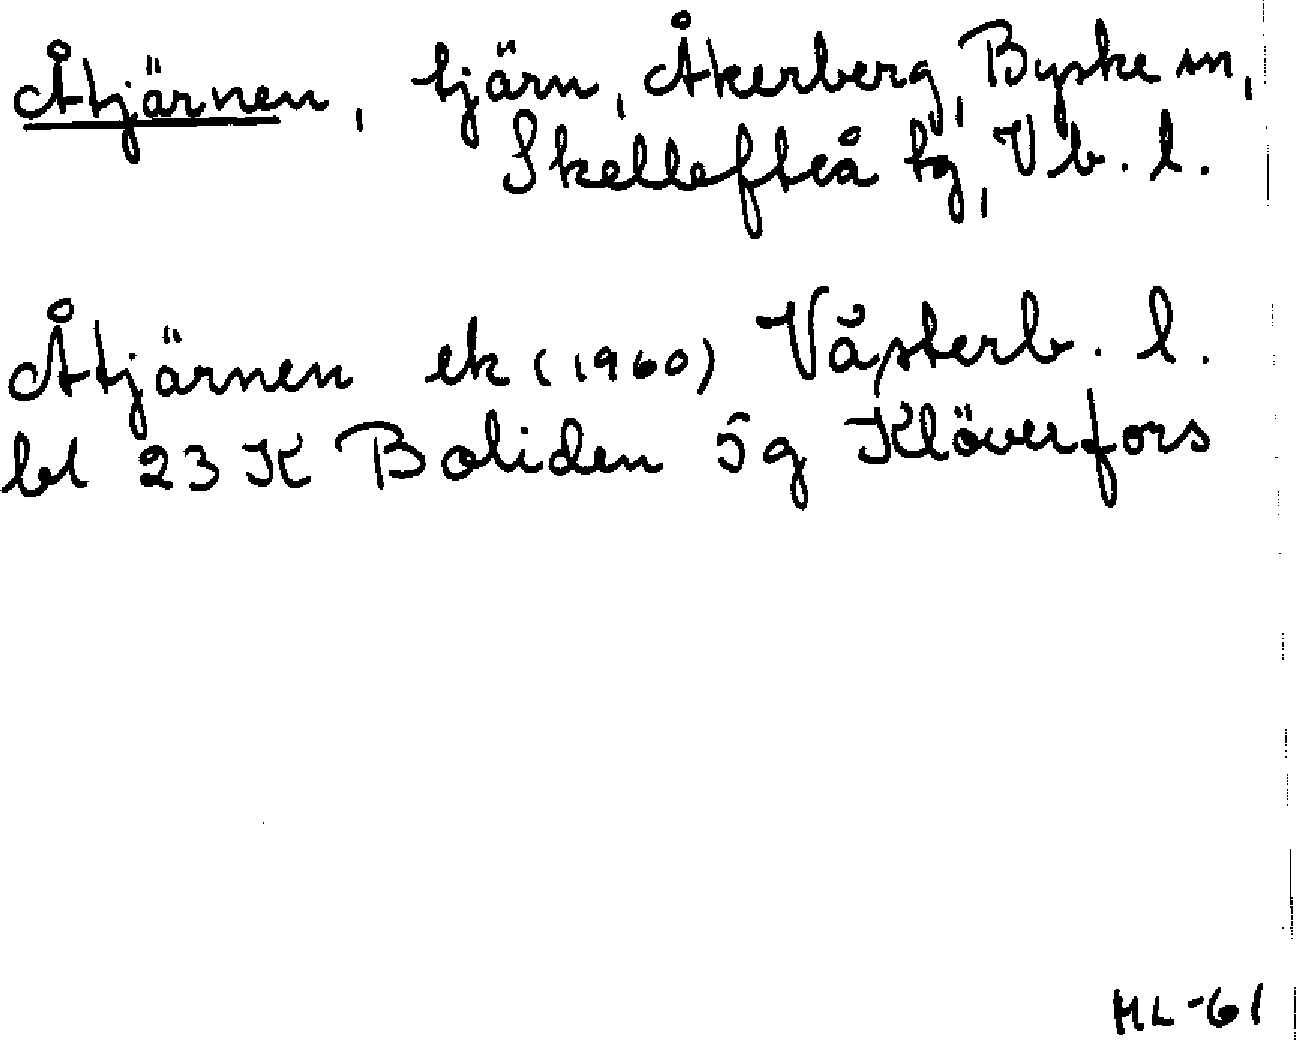 Åtjärnen, tjärn, Åkerberg, Byske sn,
Skellefteå tg, Vb. l.
Åtjärnen ek (1960) Västerb. l.
bl 23 K Boliden 5g Klöverfors
HL -61